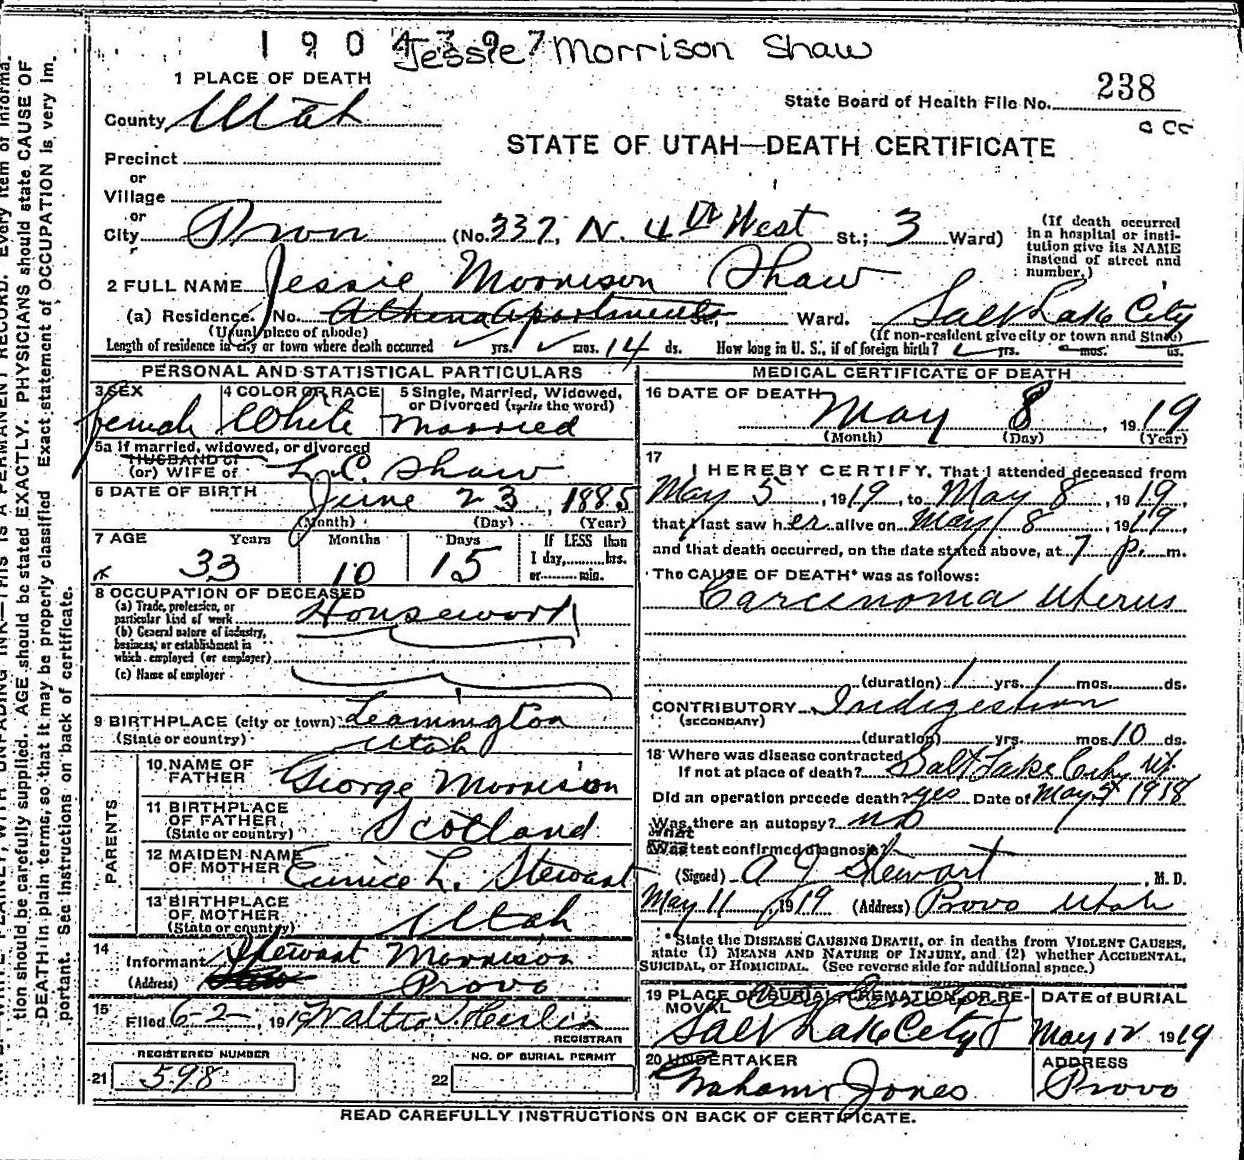 1904797 Jessie Morrison Shaw
1 PLACE OF DEATH
State Board of Health File No. 238
County Utah
STATE OF UTAH—DEATH CERTIFICATE
Precinct
or
Village
or
City Provo (No. 337, N. 4th West St.; 3 Ward)
(If death occurred in a hospital or insti-tution give its NAME instead of street and number.)
2 FULL NAME Jessie Morrison Shaw
(a) Residence. No. Athena Apartments St., Ward. Salt Lake City
(Usual place of abode) (If non-resident give city or town and State)
Length of residence in city or town where death occurred yrs. mos. 14 ds. How long in U. S., if of foreign birth? yrs. mos. ds.
PERSONAL AND STATISTICAL PARTICULARS
3 SEX female
4 COLOR OR RACE White
5 Single, Married, Widowed, or Divorced (write the word) Married
5a If married, widowed, or divorced
HUSBAND of
(or) WIFE of L. C. Shaw
6 DATE OF BIRTH June 23, 1885
(Month) (Day) (Year)
7 AGE Years Months Days If LESS than
33 10 15 1 day, hrs.
or min.
8 OCCUPATION OF DECEASED
(a) Trade, profession, or
particular kind of work Housework
(b) General nature of industry,
business, or establishment in
which employed (or employer)
(c) Name of employer
9 BIRTHPLACE (city or town) Leamington
(State or country) Utah
PARENTS
10 NAME OF FATHER George Morrison
11 BIRTHPLACE OF FATHER (State or country) Scotland
12 MAIDEN NAME OF MOTHER Eunice L. Stewart
13 BIRTHPLACE OF MOTHER (State or country) Utah
14 Informant Stewart Morrison
(Address) Provo
15 Filed 6-2-, 1919 Walter T. Hasler
REGISTRAR
REGISTERED NUMBER
21 598
NO. OF BURIAL PERMIT
22
MEDICAL CERTIFICATE OF DEATH
16 DATE OF DEATH May 8, 1919
(Month) (Day) (Year)
17 I HEREBY CERTIFY, That I attended deceased from
May 5, 1919, to May 8, 1919,
that I last saw her alive on May 8, 1919,
and that death occurred, on the date stated above, at 7 p. m.
The CAUSE OF DEATH* was as follows:
Carcinoma Uterus
(duration) 1 yrs. 1 mos. ds.
CONTRIBUTORY Indigestion
(SECONDARY)
(duration) yrs. mos. 10 ds.
18 Where was disease contracted
If not at place of death? Salt Lake City Ut.
Did an operation precede death? yes Date of May 1918
Was there an autopsy? no
What test confirmed diagnosis?
(Signed) A J Stewart, M. D.
May 11, 1919 (Address) Provo Utah
*State the DISEASE CAUSING DEATH, or in deaths from VIOLENT CAUSES,
state (1) MEANS AND NATURE OF INJURY, and (2) whether ACCIDENTAL,
SUICIDAL, or HOMICIDAL. (See reverse side for additional space.)
19 PLACE OF BURIAL, CREMATION, OR RE-MOVAL Salt Lake City
DATE of BURIAL May 12 1919
20 UNDERTAKER Graham Jones
ADDRESS Provo
READ CAREFULLY INSTRUCTIONS ON BACK OF CERTIFICATE.
tion should be carefully supplied. AGE should be stated EXACTLY. PHYSICIANS should state CAUSE OF
DEATH in plain terms, so that it may be properly classified Exact statement of OCCUPATION is very im-
portant. See instructions on back of certificate.